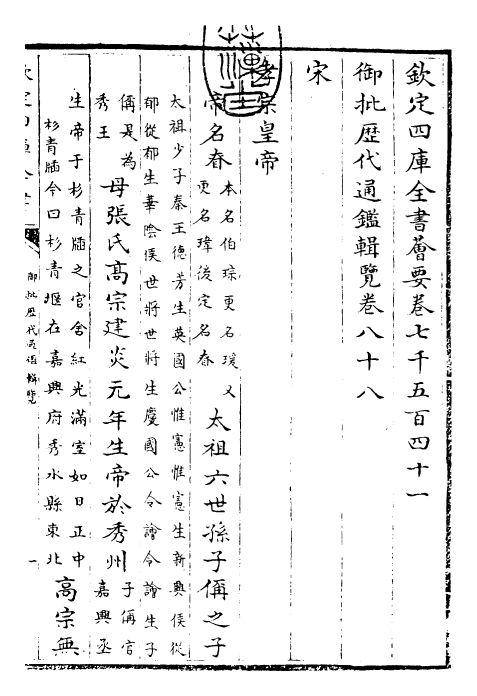 欽定四庫全書薈要卷七千五百四十一
御批歴代通鑑輯覽卷八十八
宋
孝宗皇帝
帝名眘
本名伯琮更名瑗又
更名瑋後定名眘
太祖六世孫子偁之子
太祖少子秦王德芳生英國公惟憲惟憲生新興侯從
郁從郁生華陰侯世將世將生慶國公令譮令譮生子
偁是為
秀王
母張氏髙宗建炎元年生帝於秀州
子偁官
嘉興丞
生帝于杉青牐之官舍紅光滿室如日正中
杉青牐今曰杉青堰在嘉興府秀水縣東北
高宗無
御批歴代通鑑輯覽
一